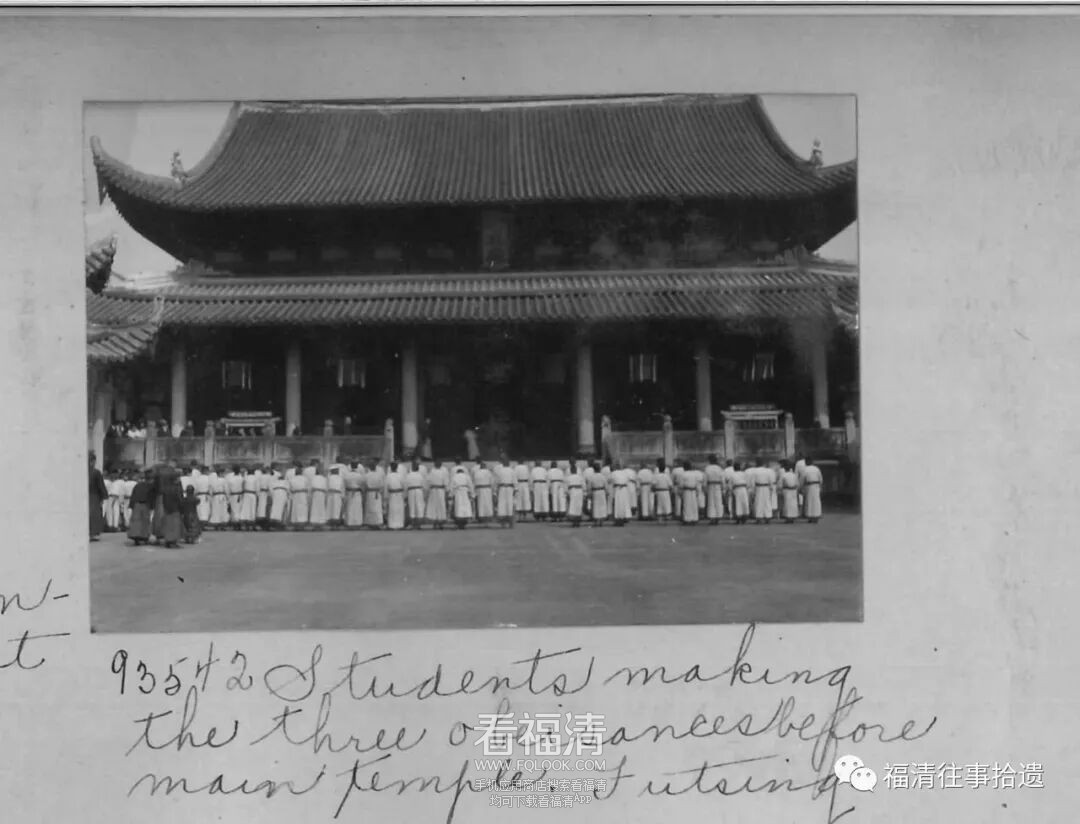 n-
t
93542 Students making
the three obeisances before
main temple. Futsing
看福清
WWW.FQLOOK.COM
手机应用商店搜索看福清
均可下载看福清APP
福清往事拾遗